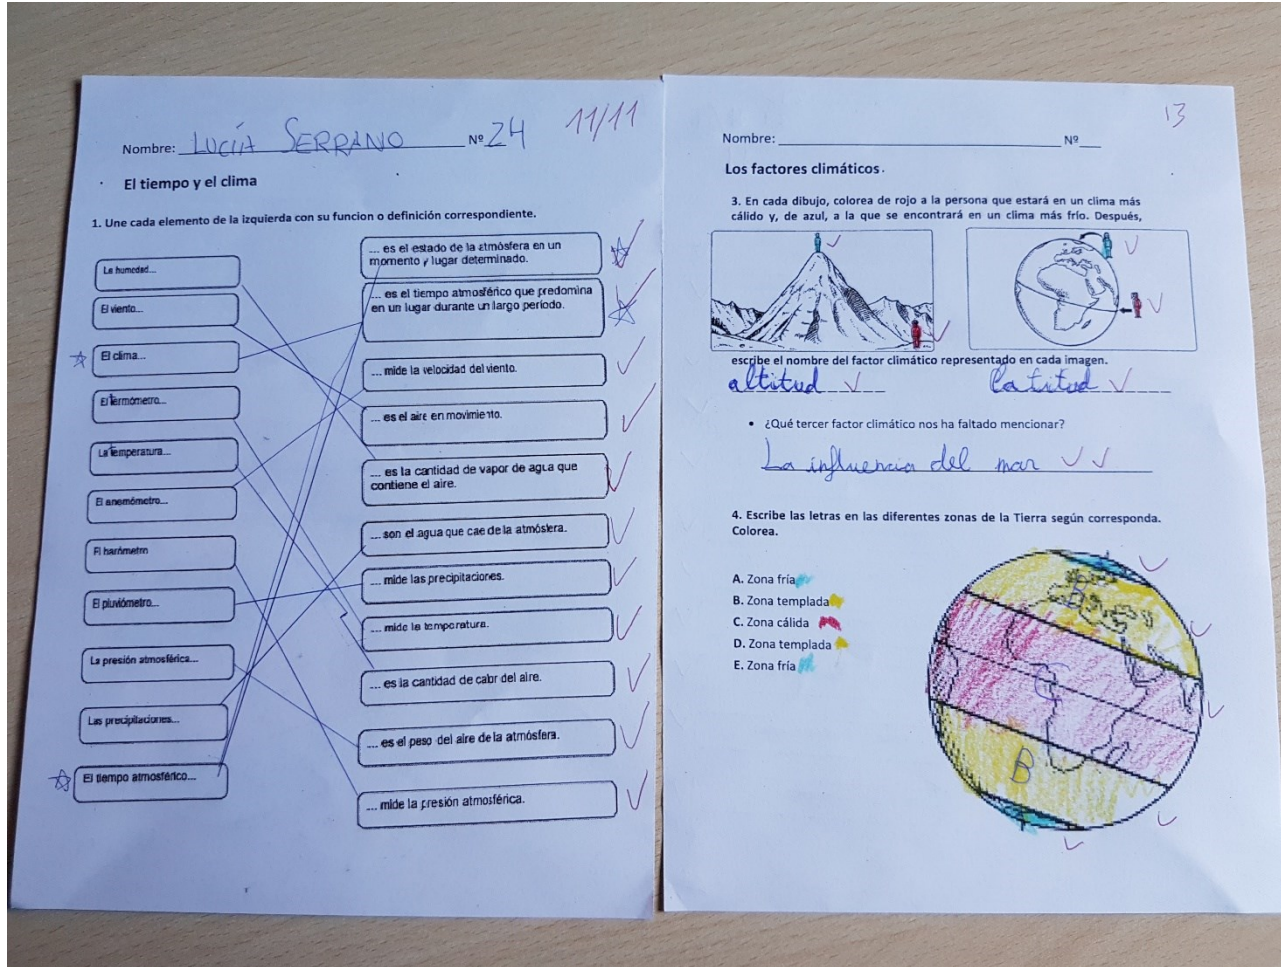 Nombre: LUCÍA SERRANO Nº 24 11/11
El tiempo y el clima
1. Une cada elemento de la izquierda con su funcion o definición correspondiente.
La humedad...
El viento...
El clima...
El termómetro...
La temperatura...
El anemómetro...
El barómetro
El pluviómetro...
La presión atmosférica...
Las precipitaciones...
El tiempo atmosférico...
... es el estado de la atmósfera en un
momento y lugar determinado.
... es el tiempo atmosférico que predomina
en un lugar durante un largo período.
... mide la velocidad del viento.
... es el aire en movimiento.
... es la cantidad de vapor de agua que
contiene el aire.
... son el agua que cae de la atmósfera.
... mide las precipitaciones.
... mide la temperatura.
... es la cantidad de calor del aire.
... es el peso del aire de la atmósfera.
... mide la presión atmosférica.
13
Nombre: Nº
Los factores climáticos.
3. En cada dibujo, colorea de rojo a la persona que estará en un clima más
cálido y, de azul, a la que se encontrará en un clima más frío. Después,
escribe el nombre del factor climático representado en cada imagen.
altitud latitud
• ¿Qué tercer factor climático nos ha faltado mencionar?
La influencia del mar
4. Escribe las letras en las diferentes zonas de la Tierra según corresponda.
Colorea.
A. Zona fría
B. Zona templada
C. Zona cálida
D. Zona templada
E. Zona fría
C
B